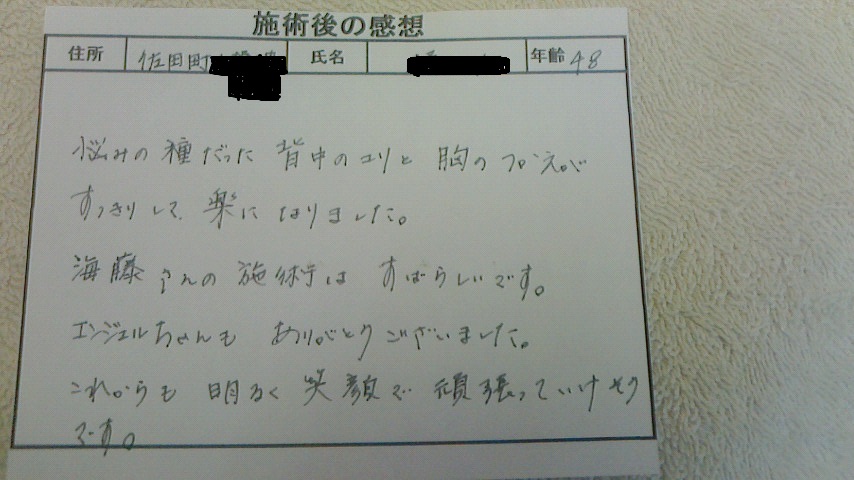 施術後の感想
住所 佐田町 氏名 年齢 48
悩みの種だった 背中のコリと 胸のつかえが
すっきりして、楽になりました。
海藤さんの施術は すばらしいです。
エンジェルちゃんも ありがとうございました。
これからも 明るく 笑顔で 頑張っていけそう
です。